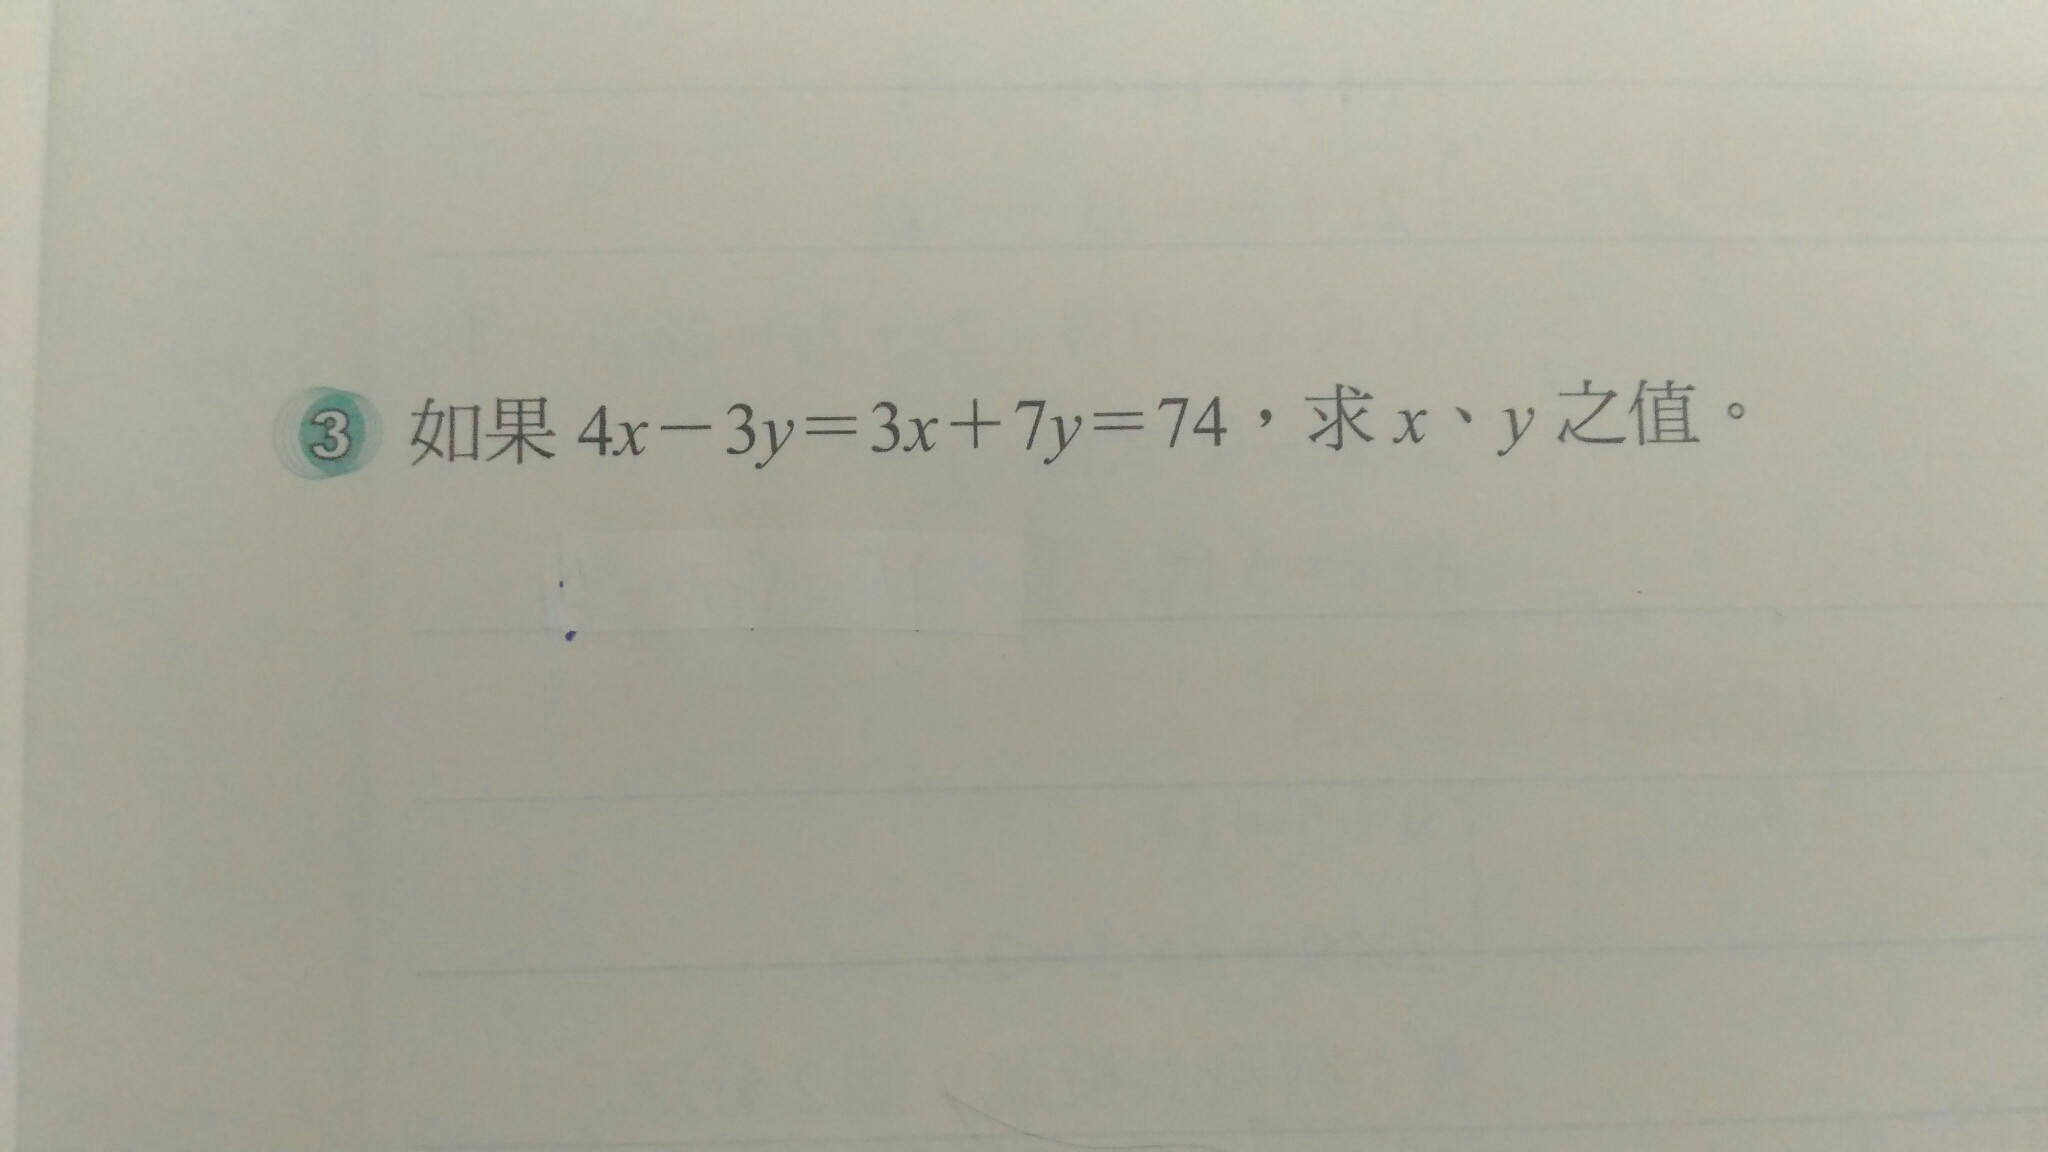 3 如果 4x－3y＝3x＋7y＝74，求 x、y 之值。